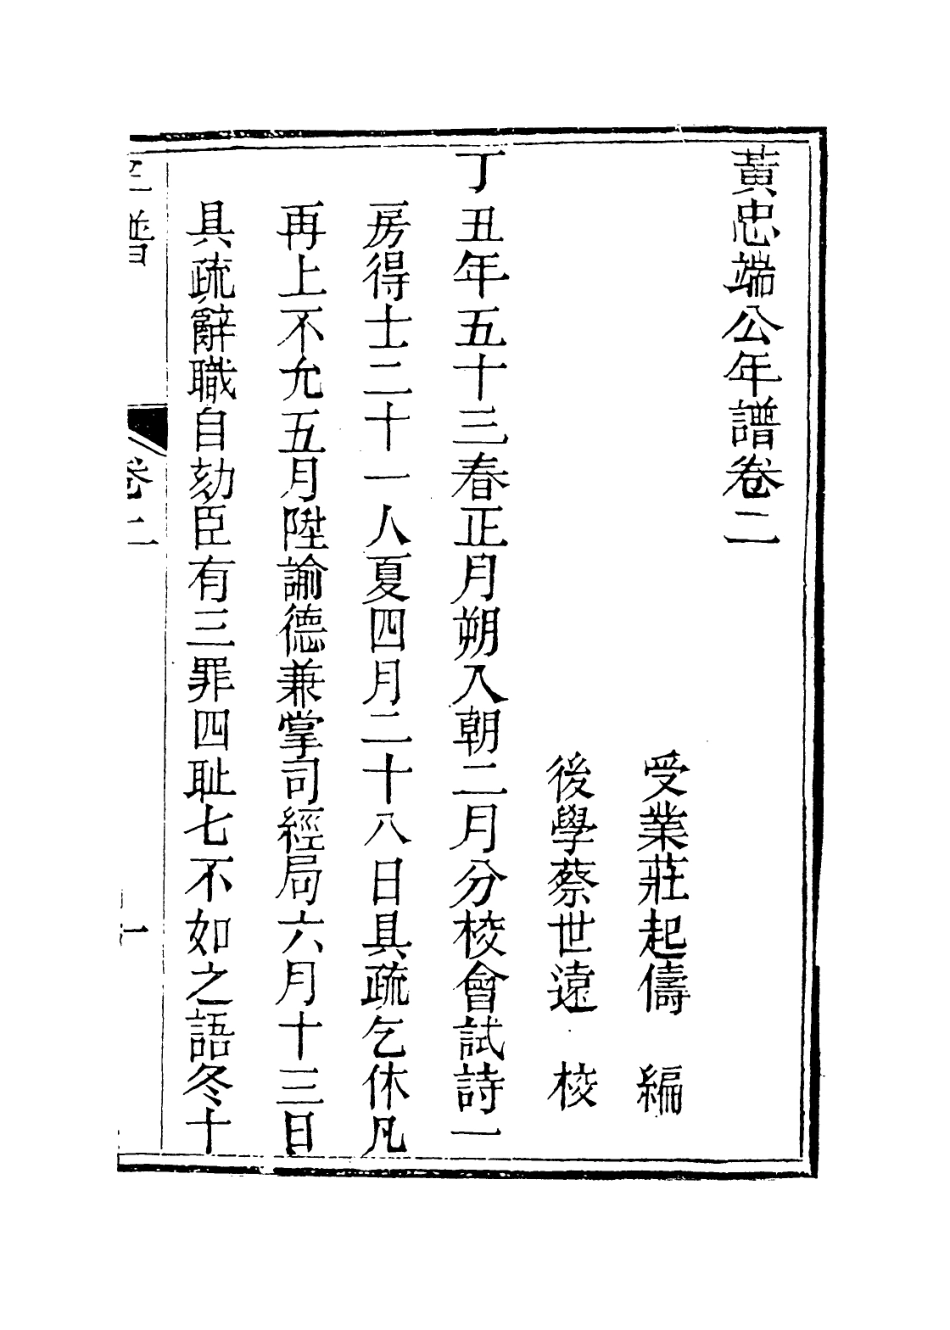 黃忠端公年譜卷二
受業莊起儔　編
後學蔡世遠　校
丁丑年五十三春正月朔入朝二月分校會試詩一
房得士二十一人夏四月二十八日具疏乞休凡
再上不允五月陞諭德兼掌司經局六月十三日
具疏辭職自劾臣有三罪四耻七不如之語冬十
年譜　卷二　一